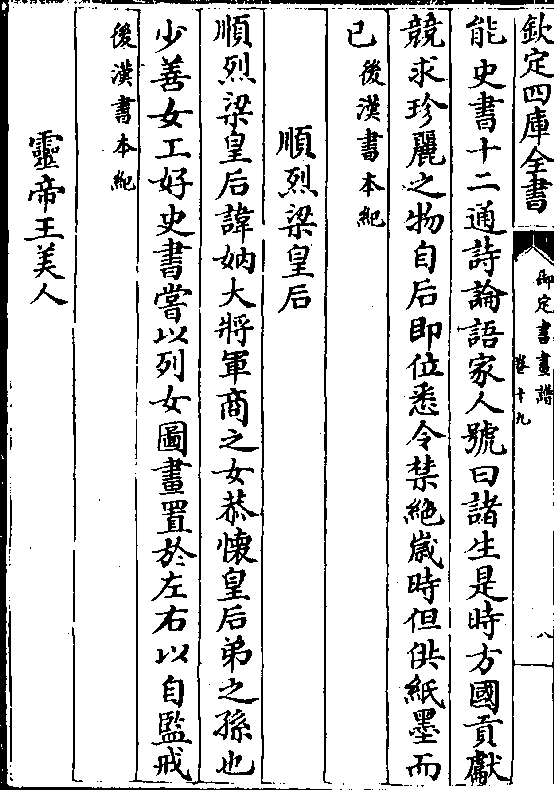 欽定四庫全書
御定書畫譜
卷十九
八
能史書十二通詩論語家人號曰諸生是時方國貢獻
競求珍麗之物自后即位悉令禁絶歲時但供紙墨而
已後漢書本紀
順烈梁皇后
順烈梁皇后諱妠大將軍商之女恭懷皇后弟之孫也
少善女工好史書嘗以列女圖畫置於左右以自監戒
後漢書本紀
靈帝王美人